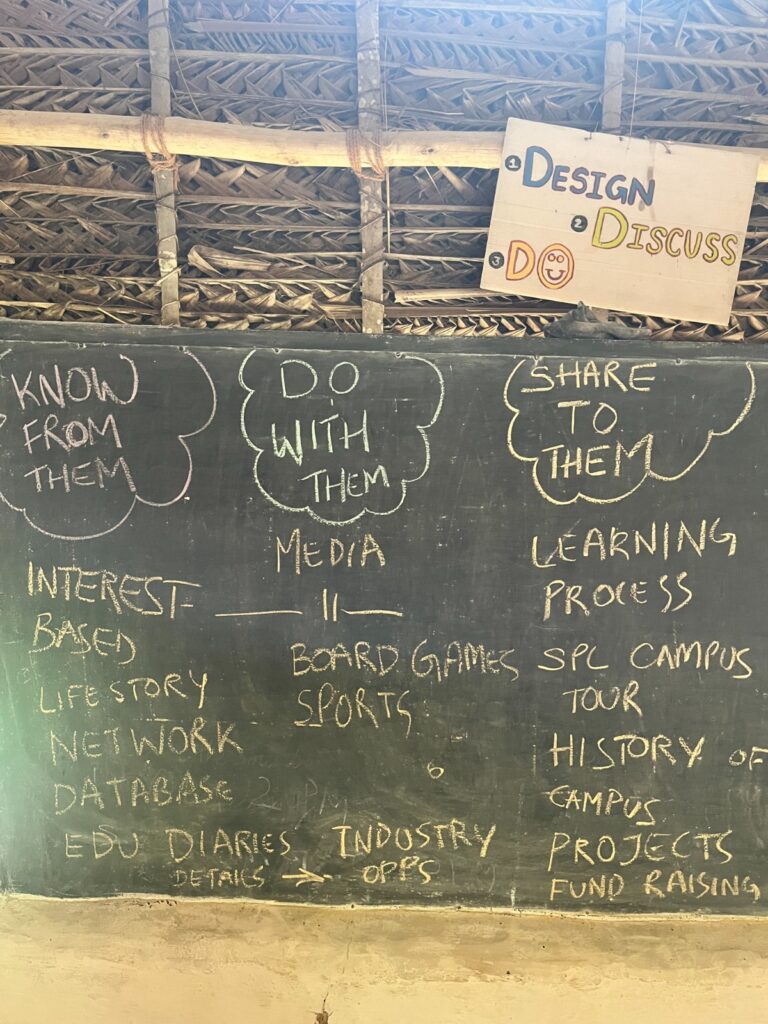 1 DESIGN
2 DISCUSS
3 DO
KNOW
FROM
THEM
INTEREST-
BASED
LIFE STORY
NETWORK
DATABASE
EDU DIARIES
DETAILS →
DO
WITH
THEM
MEDIA
— 11 —
BOARD GAMES
SPORTS
6
INDUSTRY
OPPS
SHARE
TO
THEM
LEARNING
PROCESS
SPL CAMPUS
TOUR
HISTORY OF
CAMPUS
PROJECTS
FUND RAISING